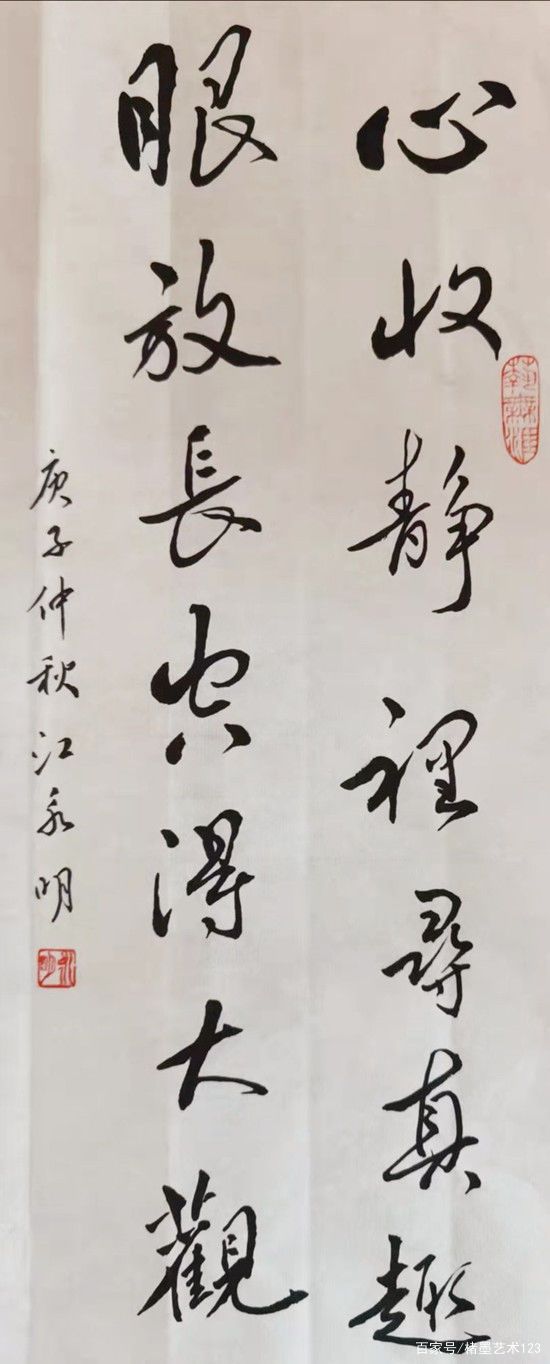 心收静裡尋真趣
眼放長空得大觀
庚子仲秋江永明
永明
百家号/楮墨艺术123